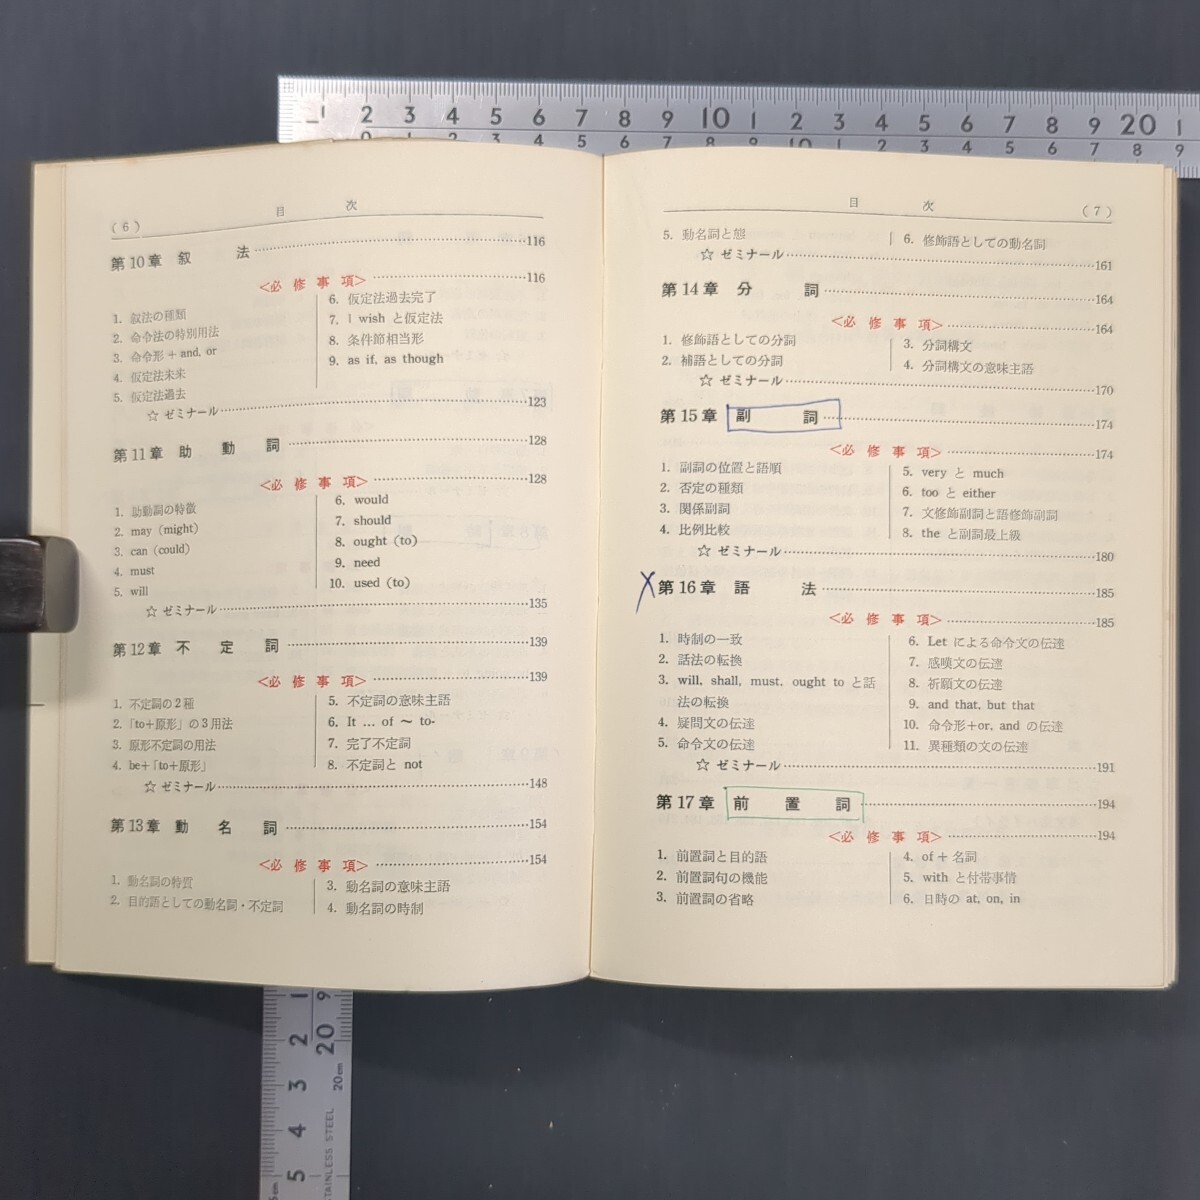 1 2 3 4 5 6 7 8 9 10 1 2 3 4 5 6 7 8 9 20 1
0 1 2 3 4 5 6 7 8 9 10 1 2 3 4 5 6 7 8 9
(6) 目 次
第10章 叙 法 116
<必修事項> 116
1. 叙法の種類
2. 命令法の特別用法
3. 命令形 + and, or
4. 仮定法未来
5. 仮定法過去
6. 仮定法過去完了
7. I wish と仮定法
8. 条件節相当形
9. as if, as though
☆ ゼミナール 123
第11章 助 動 詞 128
<必修事項> 128
1. 助動詞の特徴
2. may (might)
3. can (could)
4. must
5. will
6. would
7. should
8. ought (to)
9. need
10. used (to)
☆ ゼミナール 135
第12章 不 定 詞 139
<必修事項> 139
1. 不定詞の2種
2. 「to+原形」の3用法
3. 原形不定詞の用法
4. be+「to+原形」
5. 不定詞の意味主語
6. It … of ~ to-
7. 完了不定詞
8. 不定詞と not
☆ ゼミナール 148
第13章 動 名 詞 154
<必修事項> 154
1. 動名詞の特質
2. 目的語としての動名詞・不定詞
3. 動名詞の意味主語
4. 動名詞の時制
目 次 (7)
5. 動名詞と態
6. 修飾語としての動名詞
☆ ゼミナール 161
第14章 分 詞 164
<必修事項> 164
1. 修飾語としての分詞
2. 補語としての分詞
3. 分詞構文
4. 分詞構文の意味主語
☆ ゼミナール 170
第15章 副 詞 174
<必修事項> 174
1. 副詞の位置と語順
2. 否定の種類
3. 関係副詞
4. 比例比較
5. very と much
6. too と either
7. 文修飾副詞と語修飾副詞
8. the と副詞最上級
☆ ゼミナール 180
X 第16章 語 法 185
<必修事項> 185
1. 時制の一致
2. 話法の転換
3. will, shall, must, ought to と話
法の転換
4. 疑問文の伝達
5. 命令文の伝達
6. Let による命令文の伝達
7. 感嘆文の伝達
8. 祈願文の伝達
9. and that, but that
10. 命令形+or, and の伝達
11. 異種類の文の伝達
☆ ゼミナール 191
第17章 前 置 詞 194
<必修事項> 194
1. 前置詞と目的語
2. 前置詞句の機能
3. 前置詞の省略
4. of + 名詞
5. with と付帯事情
6. 日時の at, on, in
1 2 3 4 5
9 20
20cm
STAINLESS STEEL